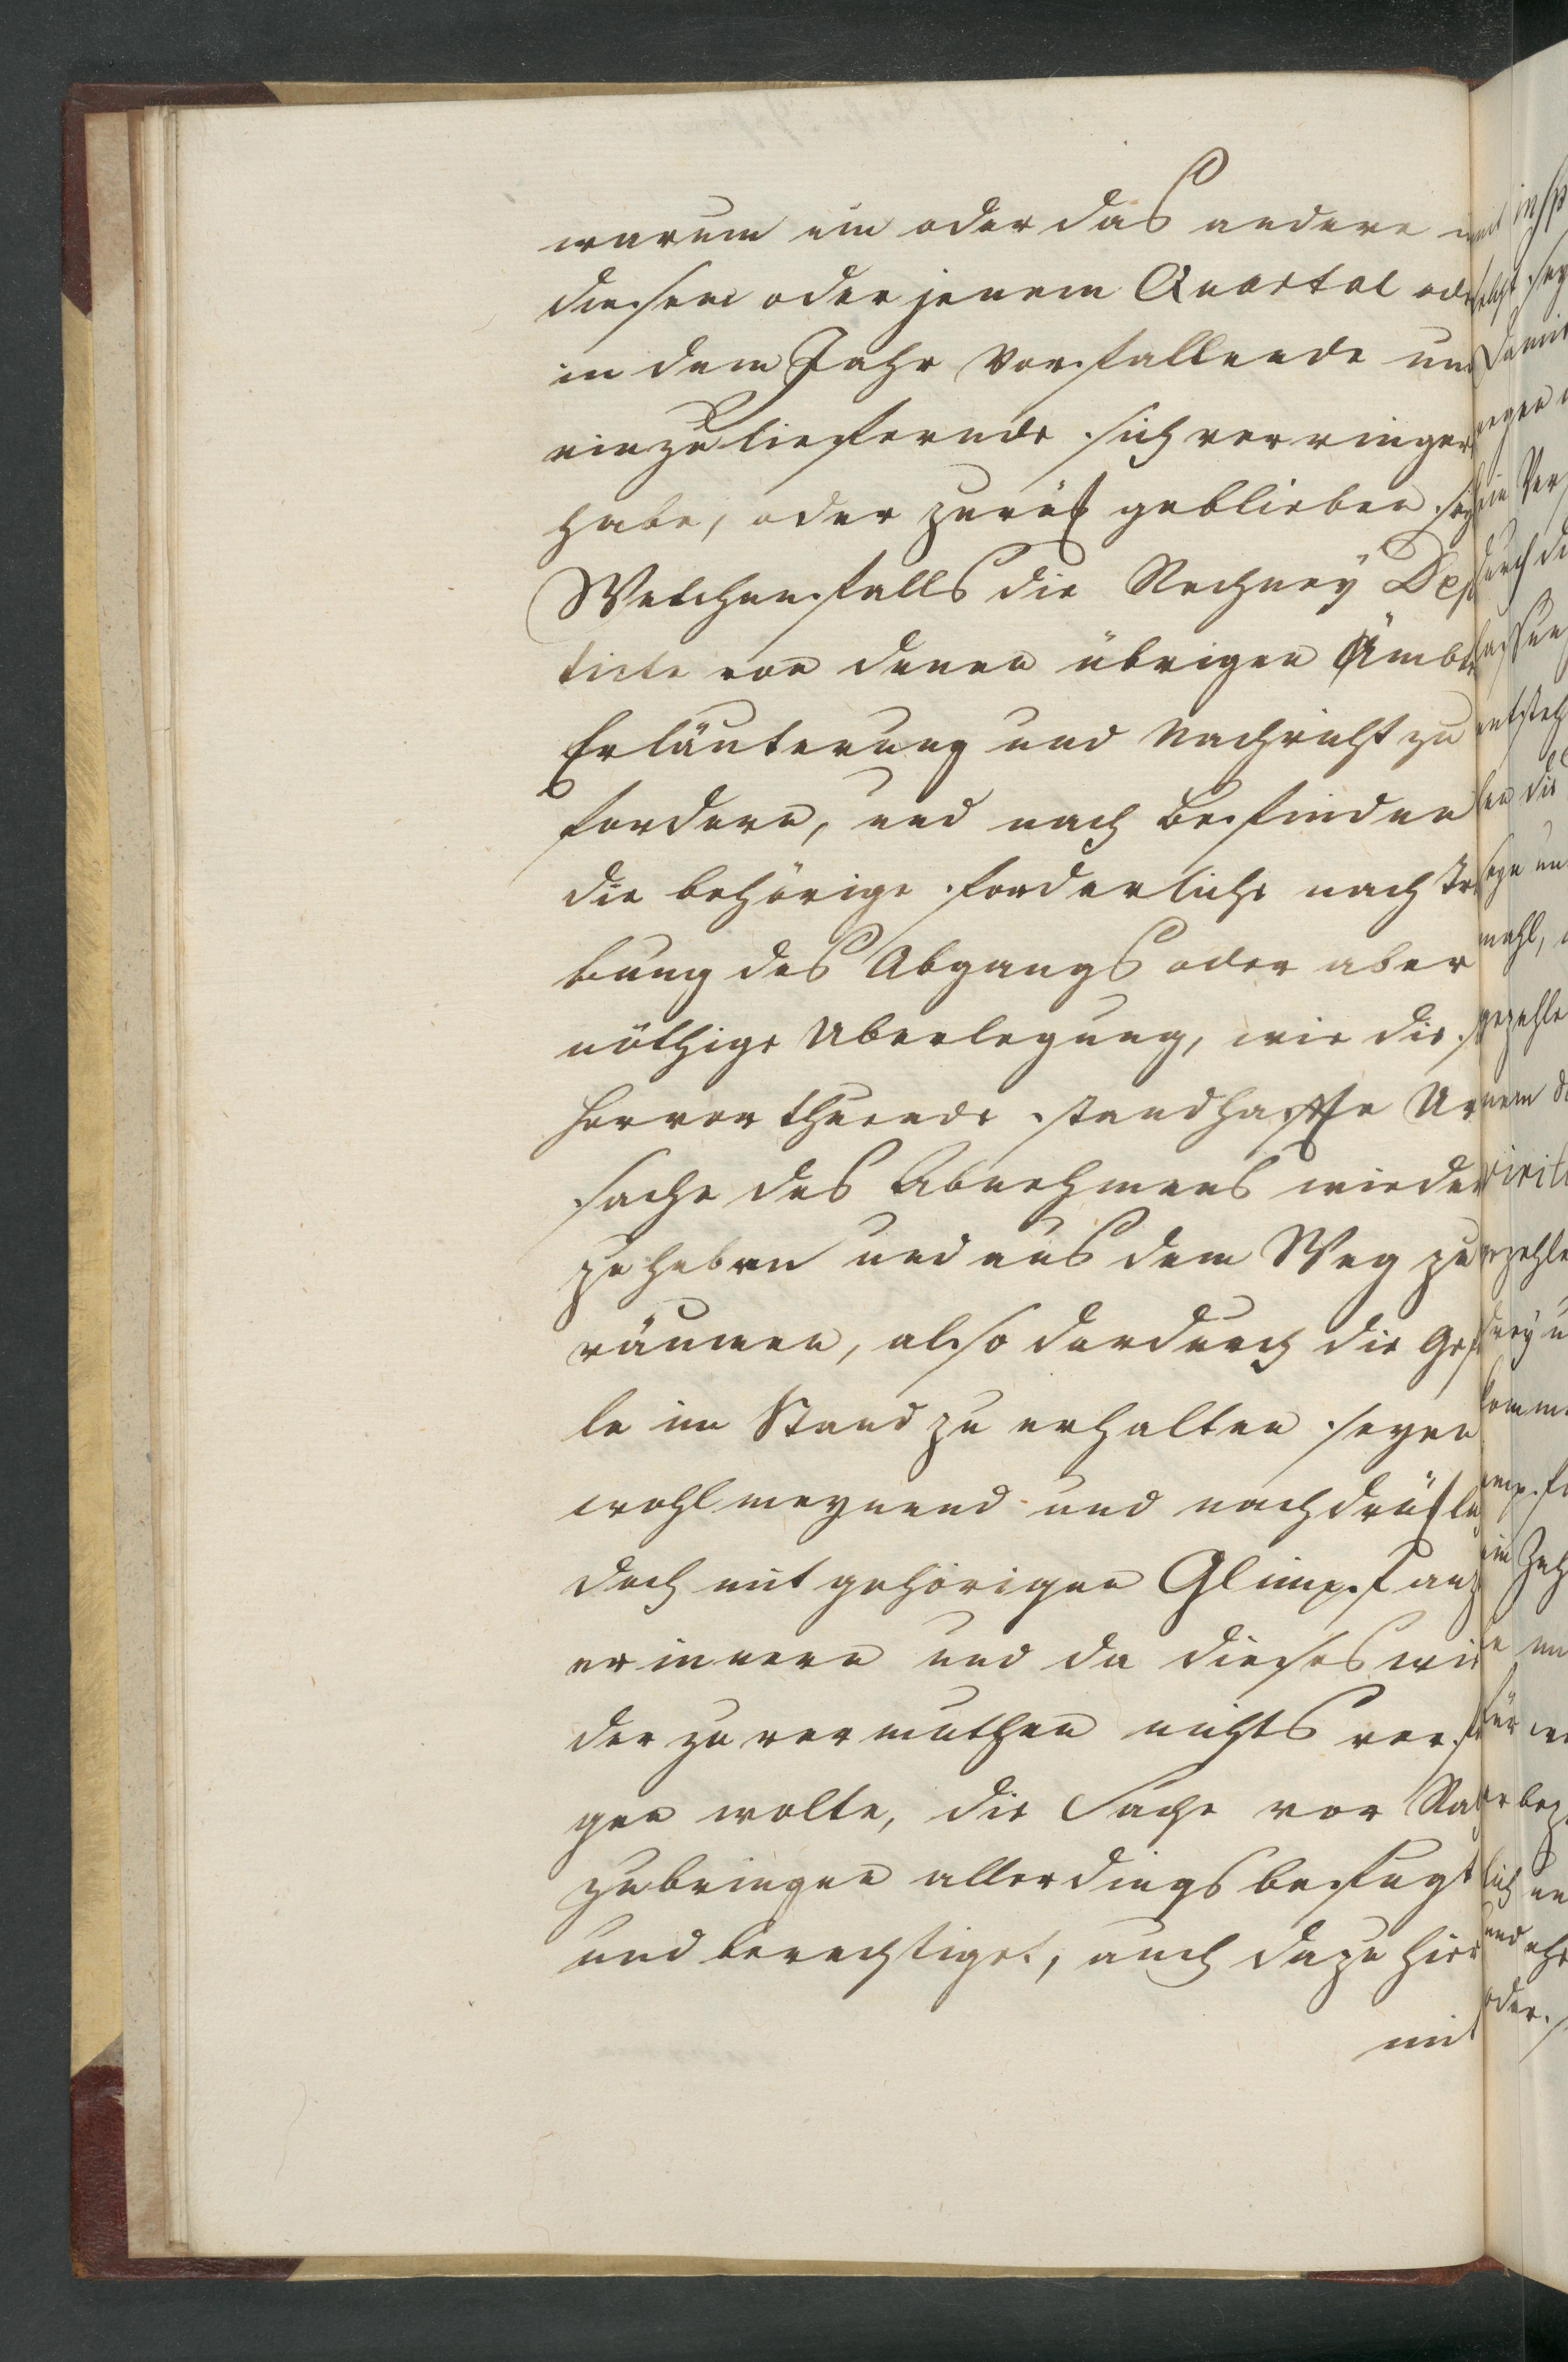 warum ein oder das andere
diesem oder jenem Quartal ode
in dem Jahr vorfallende und
einzulieffernde sich verringer
habe, oder zurük geblieben sey
Welchenfalls die Rechney Dep
tirte von denen übrigen Ämbt
Erläuterung und Nachricht zu
fordern, und nach Befinden
die behörige forderliche nach Tre
bung des Abgangs oder aber
nöthige Uberlegung, wie die s
hervor thuende standhaffte Ur
sache des Abnehmens wieder
zu heben und aus dem Weg zu
räumen, also dardurch die Gef
le im Stand zu erhalten seyen
wohlmeynend und nachdrükli
doch mit gehörigen Glimpf anz
erinnern und da dieses wie
der zu vermuthen nichts verf
gen wolte, die Sache vor Rath
zubringen allerdings befugt
und berechtiget, auch dazu hier
mit